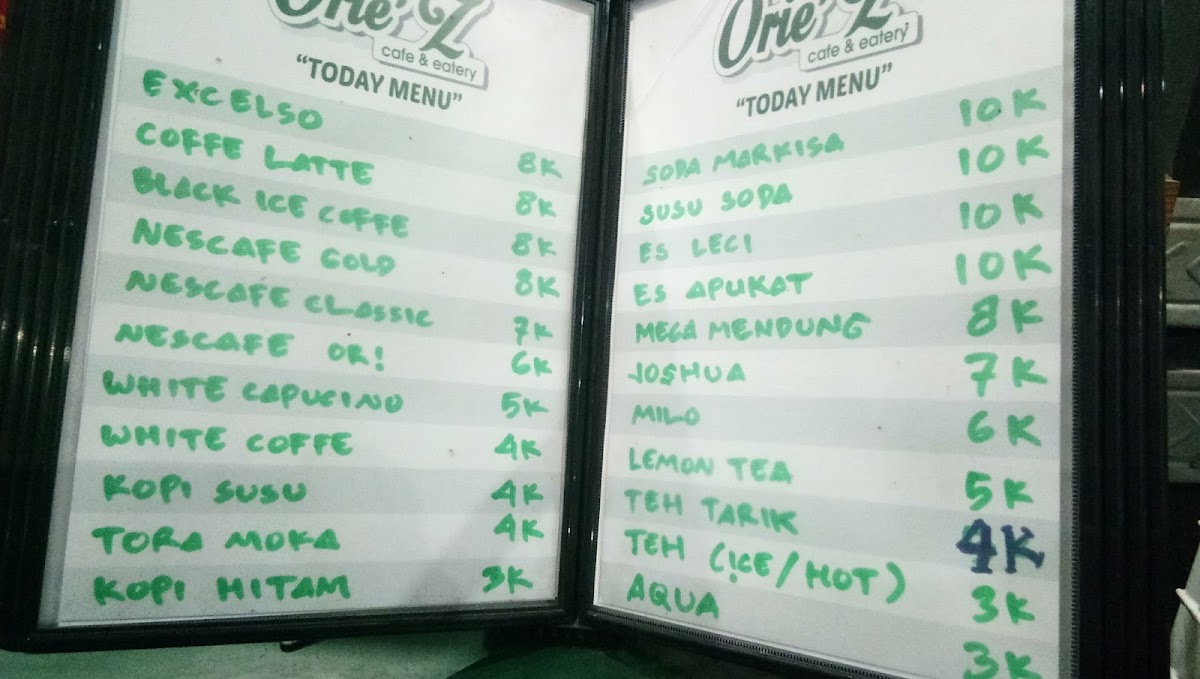 Orie'Z
cafe & eatery
"TODAY MENU"
EXCELSO 8K
COFFE LATTE 8K
BLACK ICE COFFE 8K
NESCAFE GOLD 8K
NESCAFE CLASSIC 7K
NESCAFE ORI 6K
WHITE CAPUCINO 5K
WHITE COFFE 4K
KOPI SUSU 4K
TORA MOKA 4K
KOPI HITAM 3K
Orie'Z
cafe & eatery
"TODAY MENU"
SODA MARKISA 10K
SUSU SODA 10K
ES LECI 10K
ES APUKAT 10K
MEGA MENDUNG 8K
JOSHUA 7K
MILO 6K
LEMON TEA 5K
TEH TARIK 4K
TEH (ICE/HOT) 3K
AQUA 3K